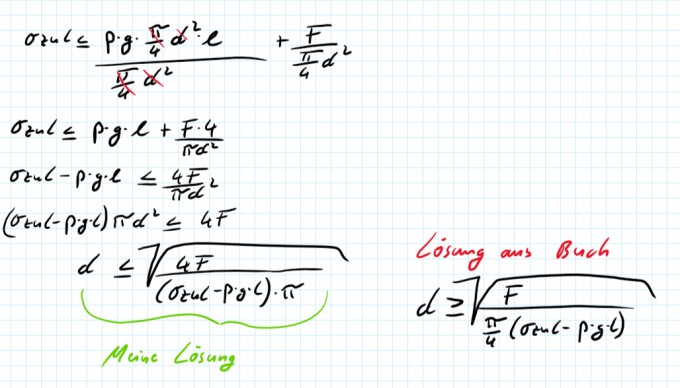 σzul ≤ (ρ·g·π/4·d²·l)/(π/4 d²) + F/(π/4 d²)
σzul ≤ ρ·g·l + F·4/πd²
σzul - ρ·g·l ≤ 4F/πd²
(σzul - ρ·g·l) πd² ≤ 4F
d ≤ √(4F/((σzul - ρ·g·l)·π))
Meine Lösung
Lösung aus Buch
d ≥ √(F/(π/4 (σzul - ρ·g·l)))